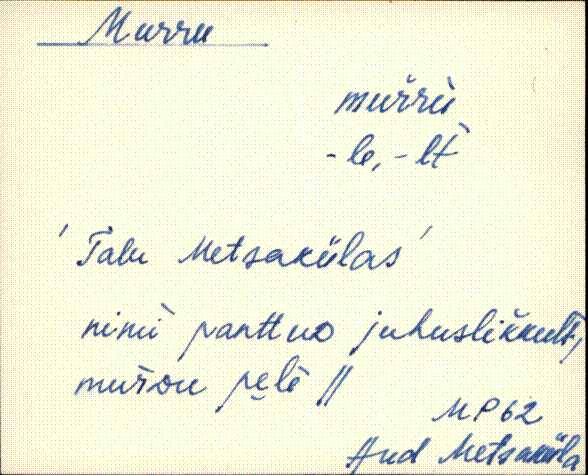 Murru
mur̆rù
-le, -lt̀
'Talu Metsakülas'
nimi panttuo juhuslikkult,
pęlè //
MP62
Aud Metsaküla